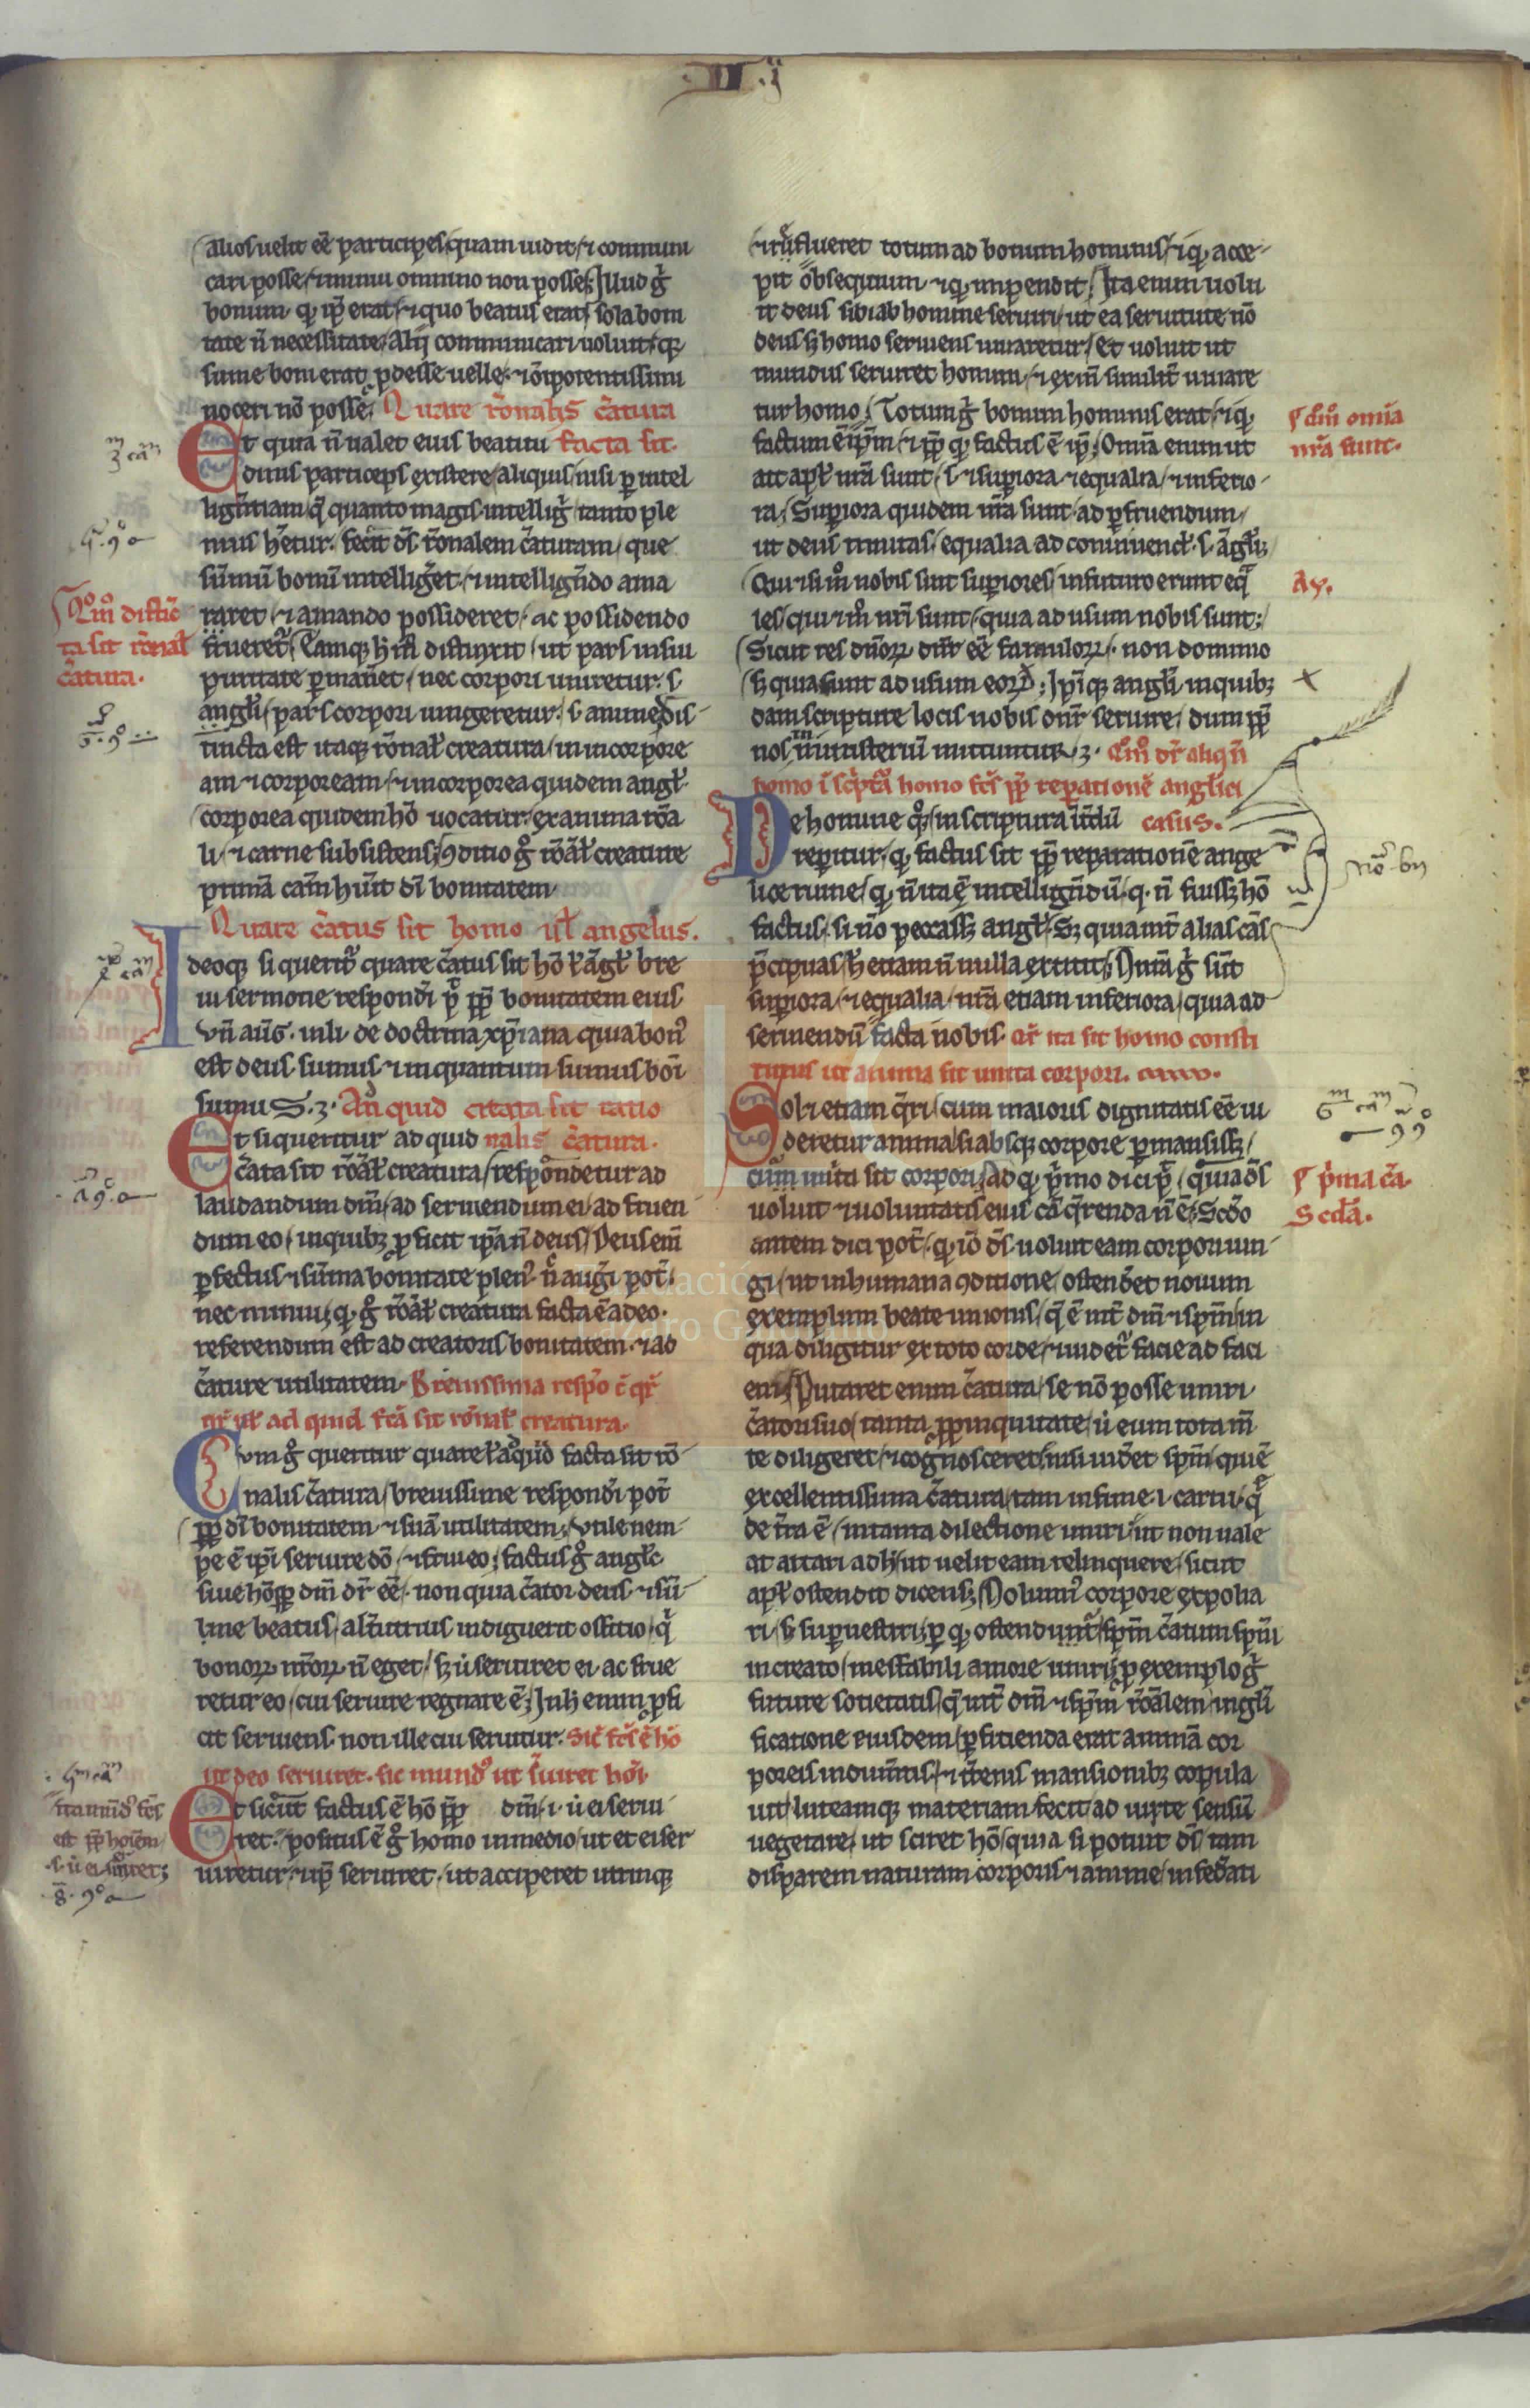 .II.i
alios uelit eē participes, quam uidit, ⁊ communi
cari posse, ⁊ minui omnino non posse. Illud g̊
bonum, qđ ip̄e erat, ⁊ quo beatus erat, sola boni
tate ñ necessitate, Alij communicari uoluit, q̄
summe boni erat, p̱desse uelle, ⁊ oīpotentissimi
noceri nō posse. Quare rōnalis c̄atura
Et quia ñ ualet eius beatitu facta sit.
dinis particeps existere, aliquis, nisi ꝑ intel
ligētiam, q̄ quanto magis intelligit̄ tanto ple
nius h̄etur. fecit dꝰ rōnalem c̄aturam, que
sūmū bonū intelliḡet, ⁊ intelligēdo ama
raret, ⁊ amando possideret, ac possidendo
frueret̄. Eamqꝫ hͦ mͦ distinxit, ut pars in sui
puritate ꝑmaneret, nec corpori uniretur. s̄
angl̄i, pars corpori iungeretur. s̄ anime. Dis
tincta est itaqꝫ rōnal̄ creatura, in incorpore
am ⁊ corpoream, ⁊ incorporea quidem angl̄.
corporea quidem hō uocatur, ex anima rōa
li, ⁊ carne subsistens. ꝯditio g̊ rōal̄ creature
primā cām hūit dī bonitatem.
Quare c̄atus sit homo ul̄ angelus.
Ideoqꝫ si querit̄ quare c̄atus sit hō ł āgl̄. bre
ui sermone respond̄i p̄t ꝓp̄ bonitatem eius.
Vn̄ auḡ. in li. de doctrina xp̄iana. quia bonꝰ
est deus. sumus. ⁊ in quantum sumus boni
sumus. Ad quid creata sit ratio
Et si queritur ad quid nalis c̄atura.
c̄ata sit rōal̄ creatura, respondetur ad
laudandum dm̄, ad seruiendum ei, ad fruen
dum eo, in quibꝫ ꝓficit ip̄a ñ deus. Deus em̄
ꝑfectus, ⁊ sūma bonitate plenꝰ. ñ auḡi pot̄.
nec minui. qđ g̊ rōal̄ creatura facta ē a deo.
referendum est ad creatoris bonitatem. ⁊ ad
c̄ature utilitatem. Breuissima respō c̄ q̄r̄
qr̄ ul̄ ad quid fc̄a sit rōnal̄ creatura.
Cum g̊ queritur quare ł ad quid facta sit rō
nalis c̄atura, breuissime respond̄i pot̄
ꝓp̄ dī bonitatem ⁊ suā utilitatem. Vtile nem
pe ē ip̄i seruire dō, ⁊ frui eo. factus g̊ angl̄s
siue hō ꝓp̄ dm̄ dr̄ eē. non quia c̄ator deus. ⁊ sū
me beatus, alt̄utrius indiguerit offitio, q̄
bonoꝝ nr̄oꝝ ñ eget, sꝫ ut seruiret ei. ac frue
retur eo, cui seruire regnare ē. In hͦ enim ꝓfi
cit seruiens. non ille cui seruitur. Sic̄ fc̄s ē hō
ut deo seruiret. sic mundꝰ ut s̄uiret hōi
Et sicut factus ē hō ꝓp̄ dm̄, i. ut ei serui
ret. positus ē g̊ homo in medio, ut et ei ser
uiretur, ⁊ ip̄e seruiret. ut acciperet utrinqꝫ
⁊ reflueret totum ad bonum hominis, ⁊ qđ acce
pit obsequium ⁊ qđ inpendit. Ita enim uolu
it deus sibi ab homine seruiri, ut ea seruitute nō
deus sꝫ homo seruiens iuuaretur, Et uoluit ut
mundus seruiret homini, ⁊ exin̄ similit̄ iuuare
tur homo. Totum g̊ bonum hominis erat, ⁊ qđ
factum ē ip̄m, ⁊ ꝓp̄ qđ factus ē ip̄e. Omīa enim ut
ait apl̄s nr̄a sunt, s̄. ⁊ suꝑiora ⁊ equalia, ⁊ inferio
ra. Suꝑiora quidem nr̄a sunt, ad ꝑfruendum,
ut deus trinitas, equalia ad conuiuend̄. s̄ āgl̄i
Qui ⁊ si mͦ nobis sint superiores, in futuro erunt eq̄
les, qui ⁊ mͦ nr̄i sunt, quia ad usum nobis sunt.
Sicut res dn̄oꝝ dn̄r eē famuloꝝ. non dominio
sꝫ quia sunt ad usum eoꝝ. Ip̄iqꝫ angl̄i in quibꝫ
dam scripture locis nobis dn̄r seruire, dum ꝓp̄
nos in ministeriū mittuntur. Qm̄o dr̄ aliqn̄
homo ī sc̄ptā homo fc̄s ꝓp̄ reparationē anglici
De homine qͦqꝫ, in scriptura īt̄dū casus.
reperitur, qđ factus sit ꝓp̄ reparationē ange
lice ruine, qđ ñ ita ē intelligēdū, q. ñ fuissꝫ hō
factus, si nō peccassꝫ angl̄s. Sꝫ quia int̄ alias cās
p̄cipuas, hͦ etiam ñ nulla extitit. Nr̄a g̊ sūt
suꝑiora, ⁊ equalia, nr̄a etiam inferiora, quia ad
seruiendū facta nobis. Qr̄ ita sit homo consti
tutus ut anima sit unita corpori.
Solet etiam q̄ri, cum maioris dignitatis eē ui
deretur anima, si absqꝫ corpore ꝑmansissꝫ,
cur unita sit corpori. Ad qđ p̄mo dici p̄t, quia dꝰs
uoluit ⁊ uoluntatis eius cā q̄renda ñ ē. Scd̄o
autem dici pot̄. qđ iō dꝰs uoluit eam corpori iun
gi, ut in humana ꝯditione ostend̄et nouum
exemplum beate unionis, q̄ ē int̄ dm̄ ⁊ sp̄m, in
qua diligitur ex toto corde, ⁊ uidet̄ facie ad faci
em. Putaret enim c̄atura, se nō posse uniri
c̄atori suo, tanta ꝓpinquitate, ut eum tota m̄
te diligeret, ⁊ cognosceret, nisi uid̄et sp̄m, qui ē
excellentissima c̄atura, tam infime. i. carni. q̄
de t̄ra ē, in tanta dilectione uniri, ut non uale
at artari ad hͦ, ut uelit eam relinquere, sicut
apl̄s ostendit dicens. Nolumꝰ corpore expolia
ri, sꝫ suꝑuestiri. ꝑ qđ ostenditur, sp̄m c̄atum sp̄ui
increato, ineffabili amore uniri. ꝓ exemplo g̊
future societatis, q̄ int̄ dm̄ ⁊ sp̄m rōalem, in gl̄i
ficatione eiusdem, ꝑfitienda erat animā cor
poreis indumtis, ⁊ t̄renis mansionibꝫ copula
uit, luteamqꝫ materiam fecit, ad uite sensū
uegetare, ut sciret hō, quia si potuit dꝰs tam
disparem naturam corporis ⁊ anime, in fed̄ati
Qͦm̄ distic̄
ta sit rōnal̄
c̄atura.
ita mūdꝰ fc̄s
est ꝓp̄ hoīem
s̄. ut ei s̄uiret
qm̄o omīa
nr̄a sunt.
p̄ma cā.
Scd̄a.